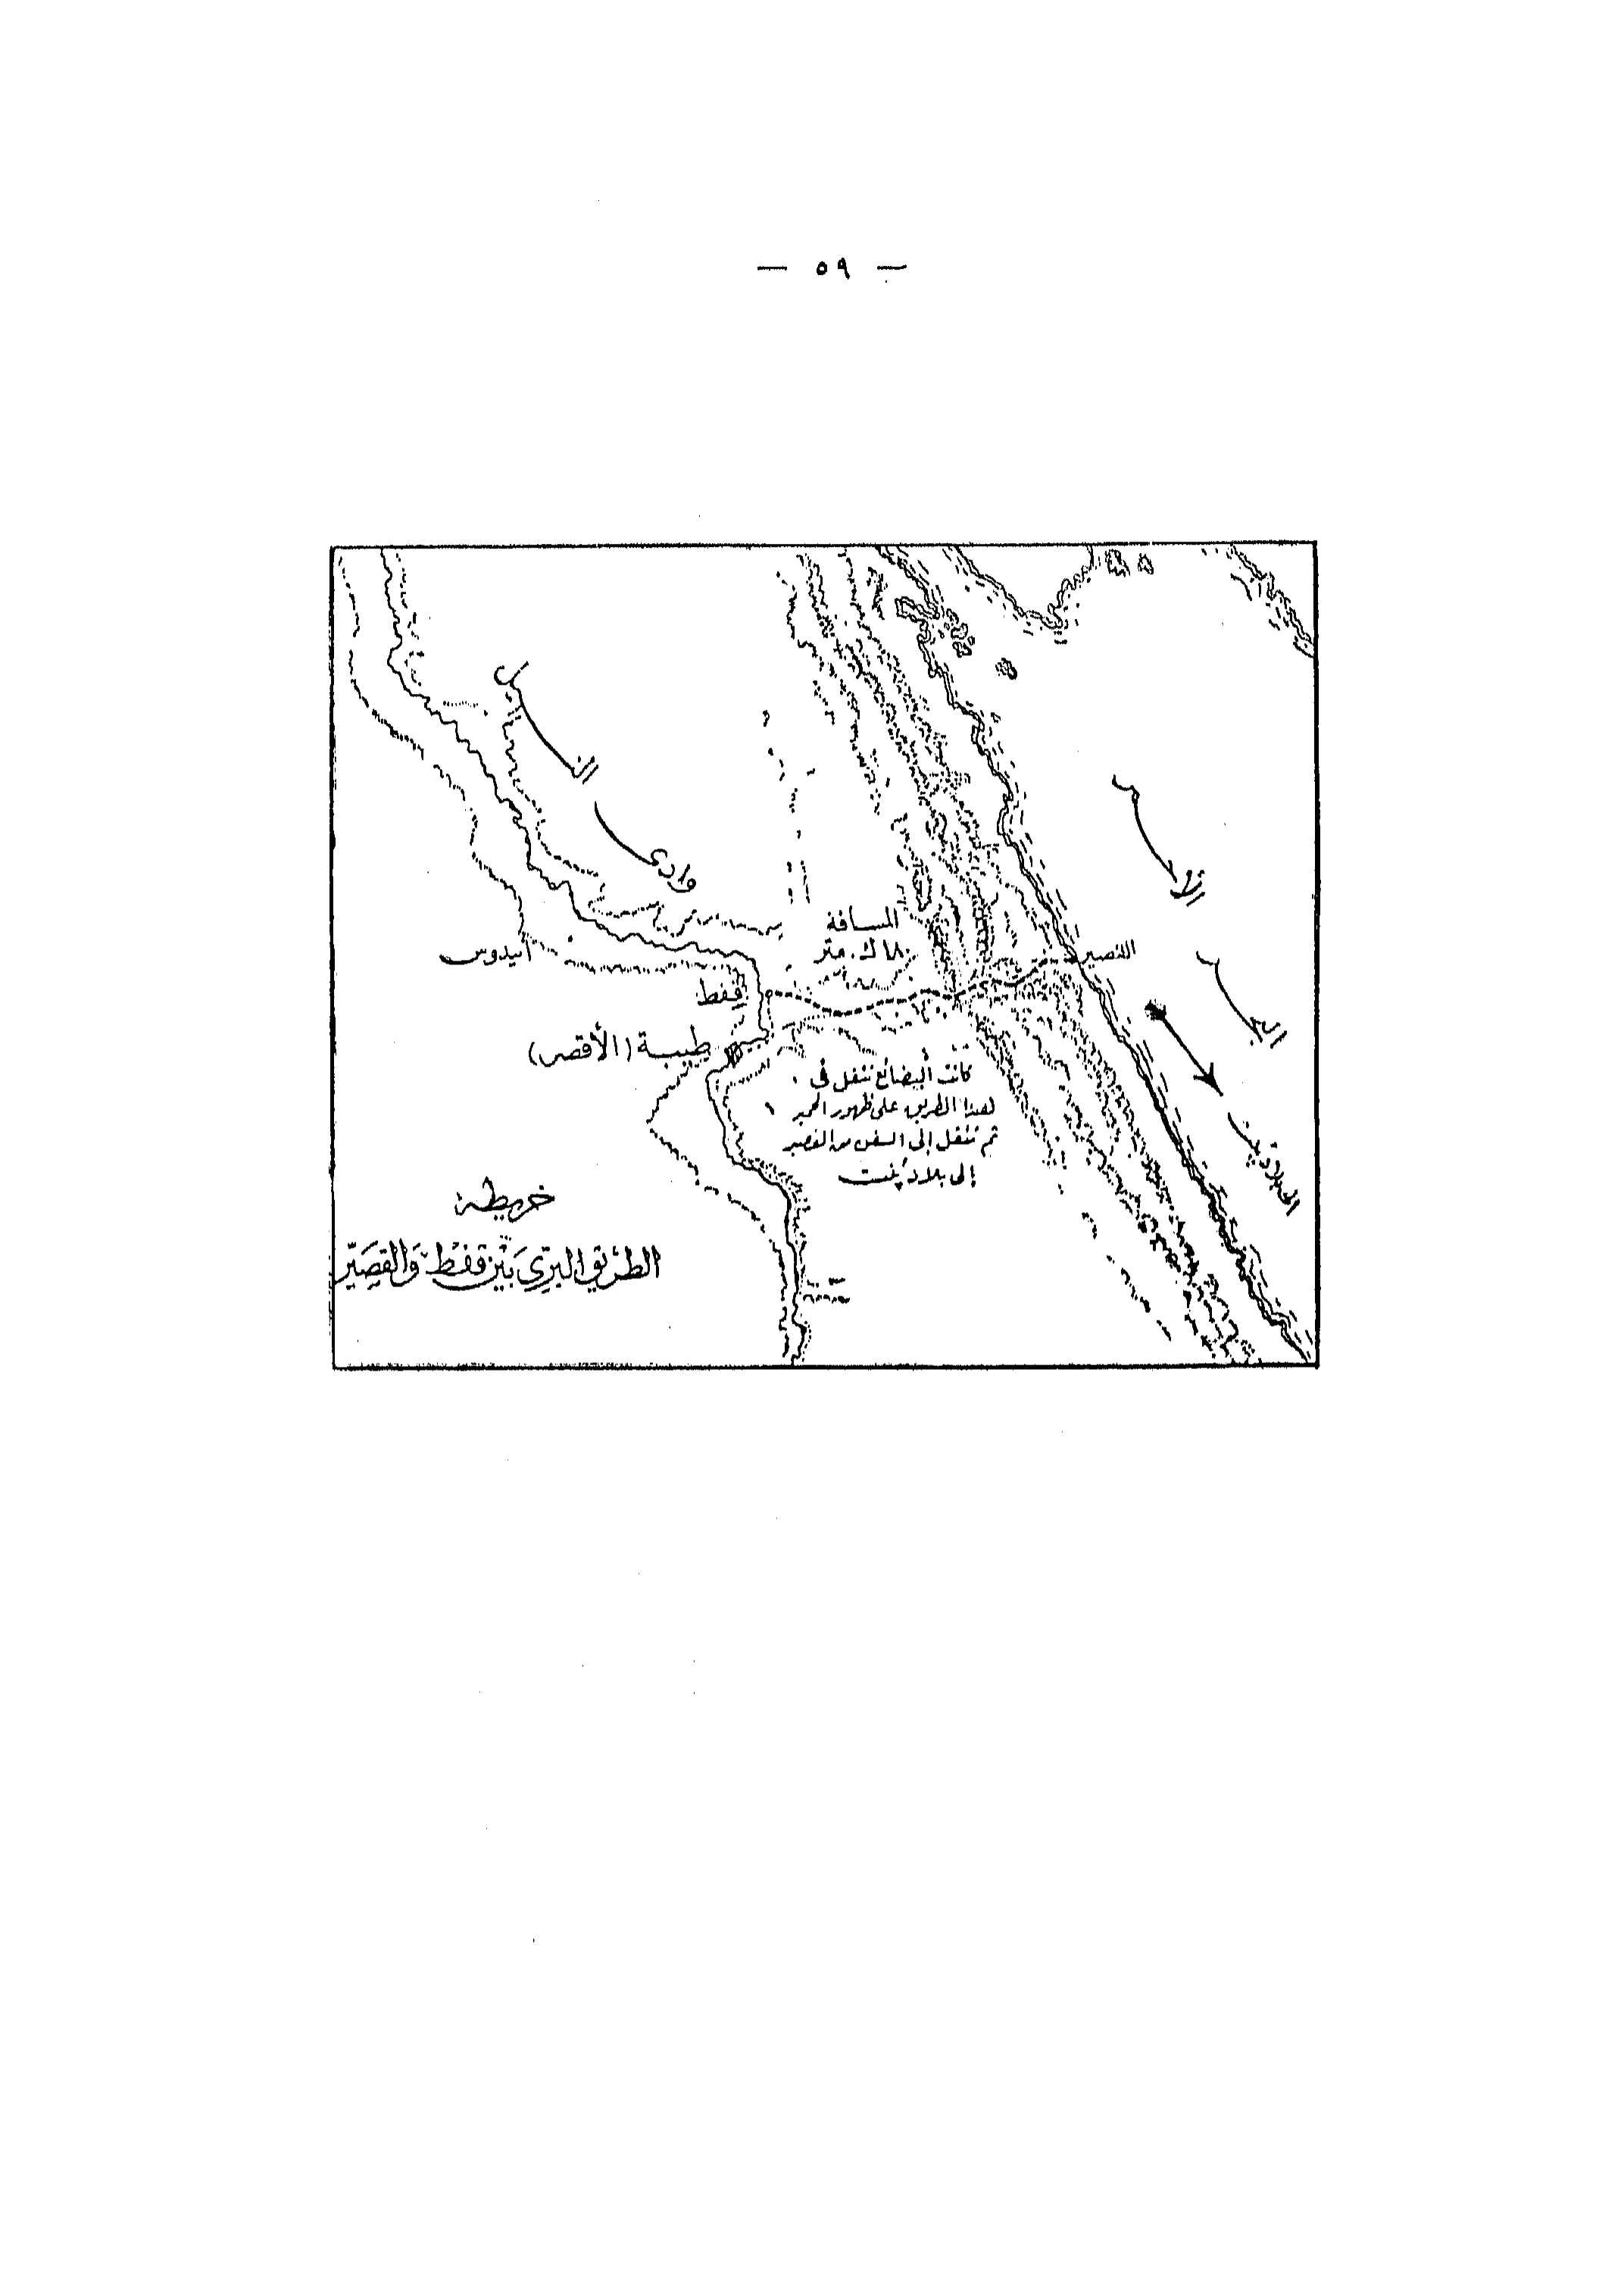 — ٥٩ —
وادى النيل
البحر الأحمر
المسافة
١٨٠ ك. متر
القصير
أبيدوس
قفط
طيبة (الأقصر)
كانت البضائع تنقل فى
هذا الطريق على ظهور الحمير
ثم تنقل إلى السفن من القصير
إلى بلاد پنت
إلى بلاد پنت
خريطة
الطريق البرى بين قفط والقصير